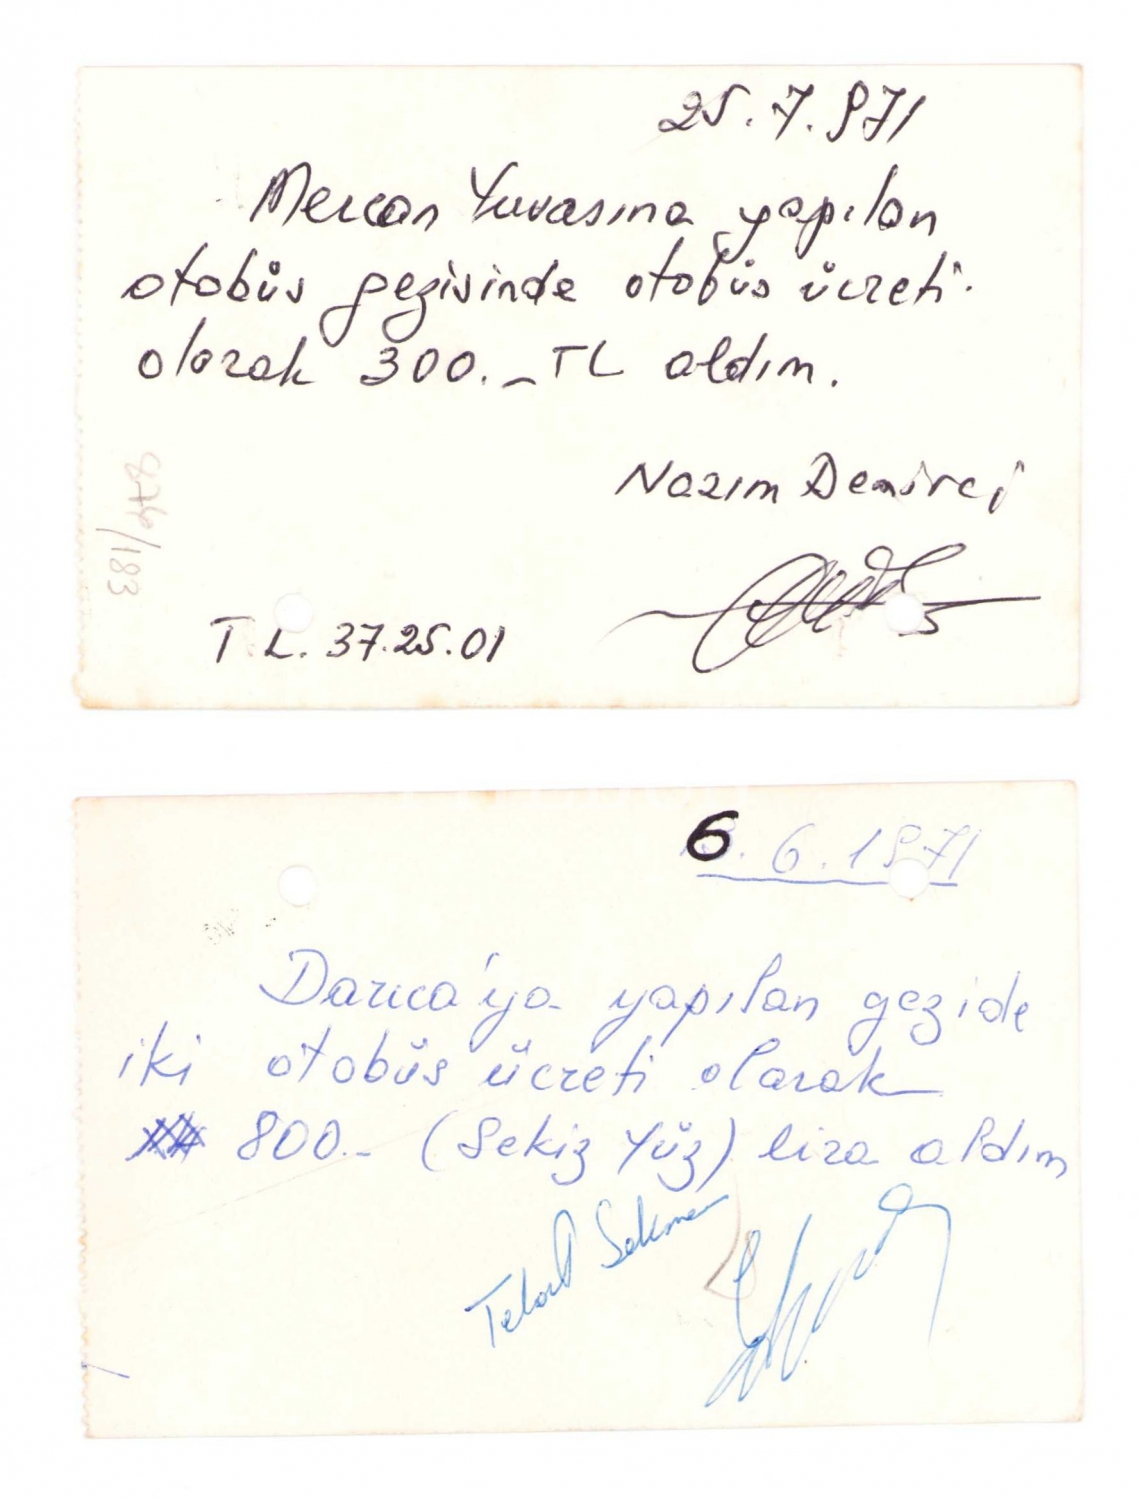 25.7.971
Mercan Yuvasına yapılan
otobüs gezisinde otobüs ücreti
olarak 300.- TL aldım.
Nazım Demirci
T.L. 37.25.01
183
6.6.1971
Darıca'ya yapılan gezide
iki otobüs ücreti olarak
800.- (Sekiz Yüz) lira aldım